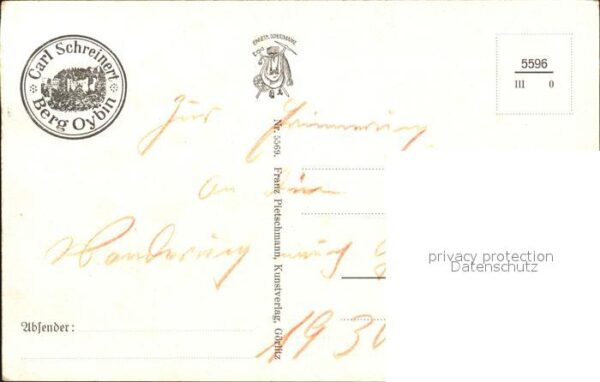 Carl Schreinert
Berg Oybin
EINGETR. SCHUTZMARKE
5596
III 0
Zur Erinnerung
an die
Wanderung nach
193
Nr. 5569. Franz Pietschmann, Kunstverlag, Görlitz
privacy protection
Datenschutz
Absender: